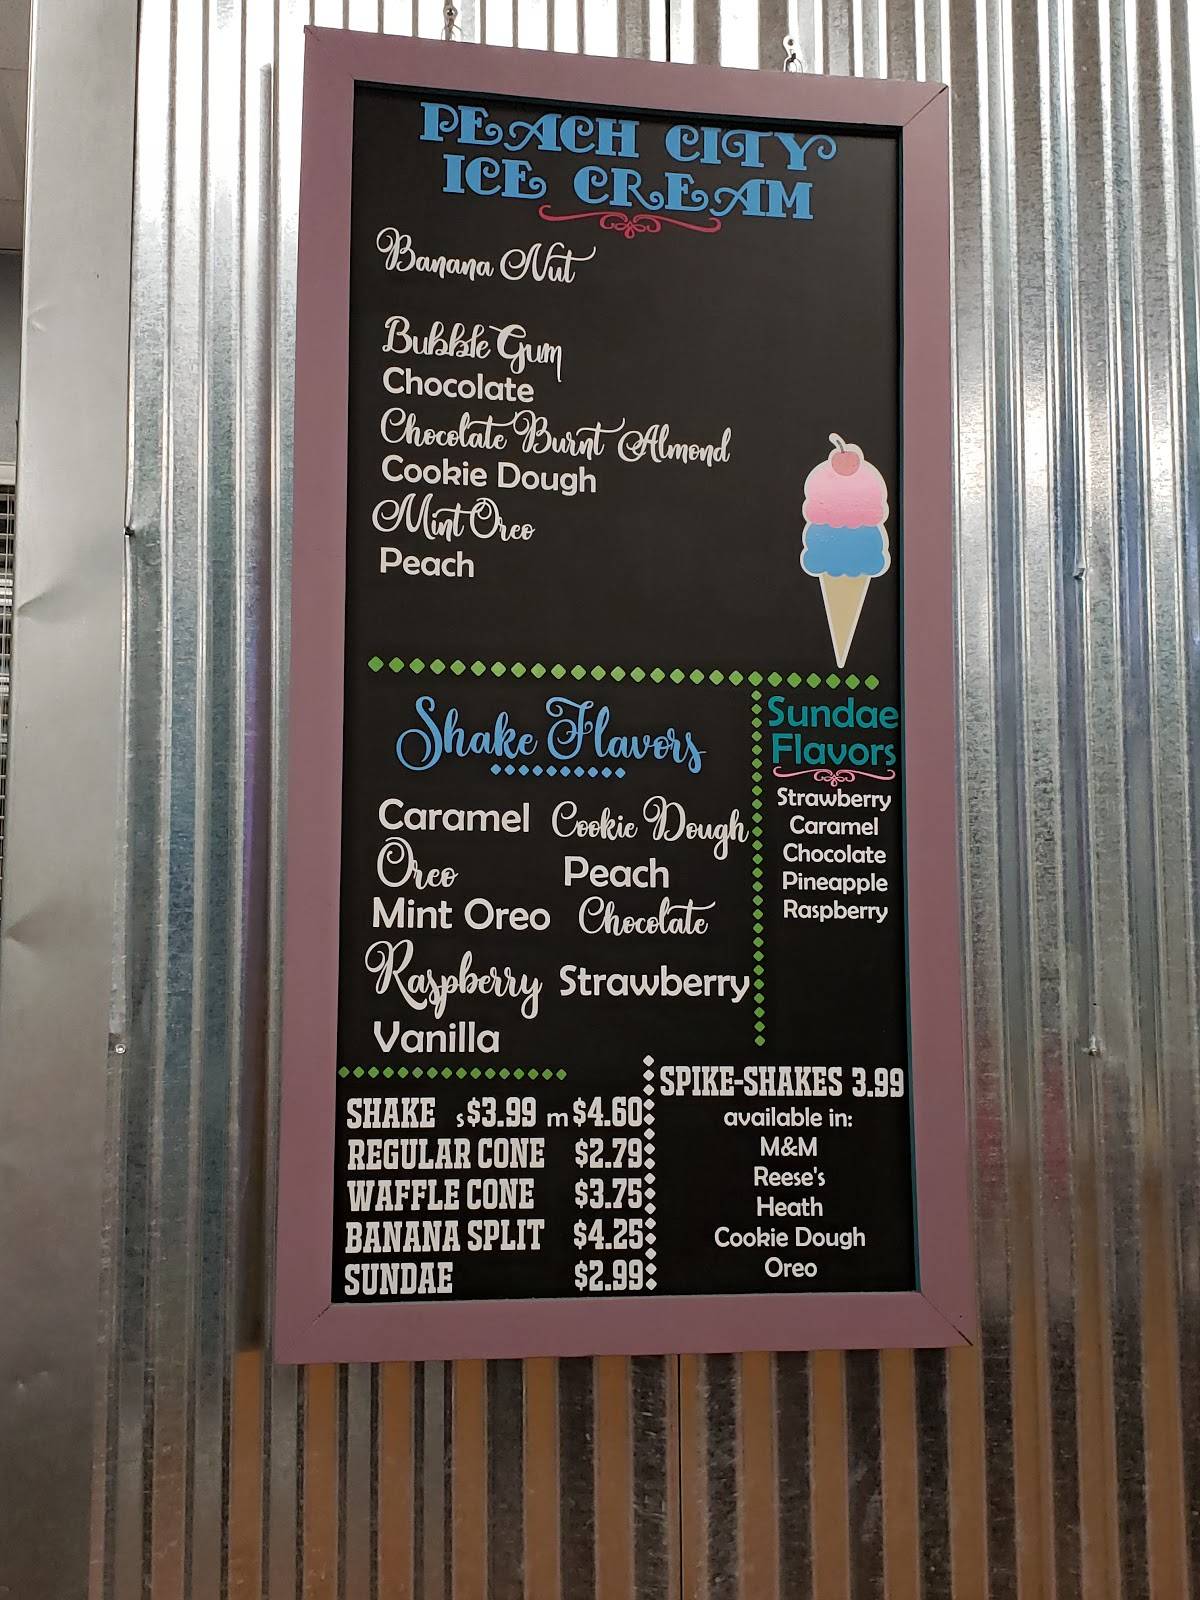 PEACH CITY
ICE CREAM
Banana Nut
Bubble Gum
Chocolate
Chocolate Burnt Almond
Cookie Dough
Mint Oreo
Peach
Shake Flavors
Caramel Cookie Dough
Oreo Peach
Mint Oreo Chocolate
Raspberry Strawberry
Vanilla
Sundae
Flavors
Strawberry
Caramel
Chocolate
Pineapple
Raspberry
SHAKE s $3.99 m $4.60
REGULAR CONE $2.79
WAFFLE CONE $3.75
BANANA SPLIT $4.25
SUNDAE $2.99
SPIKE-SHAKES 3.99
available in:
M&M
Reese's
Heath
Cookie Dough
Oreo